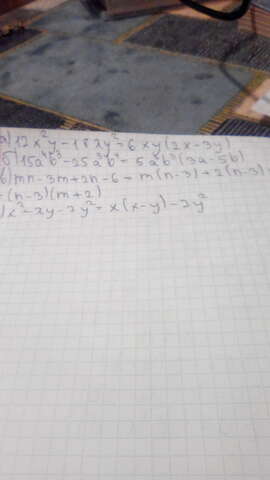 а) 12x²y - 18xy² = 6xy(2x - 3y)
б) 15a⁴b³ - 25a³b⁴ = 5a³b³(3a - 5b)
в) mn - 3m + 2n - 6 = m(n-3) + 2(n-3)
= (n-3)(m+2)
) x² - xy - 2y² = x(x-y) - 2y²